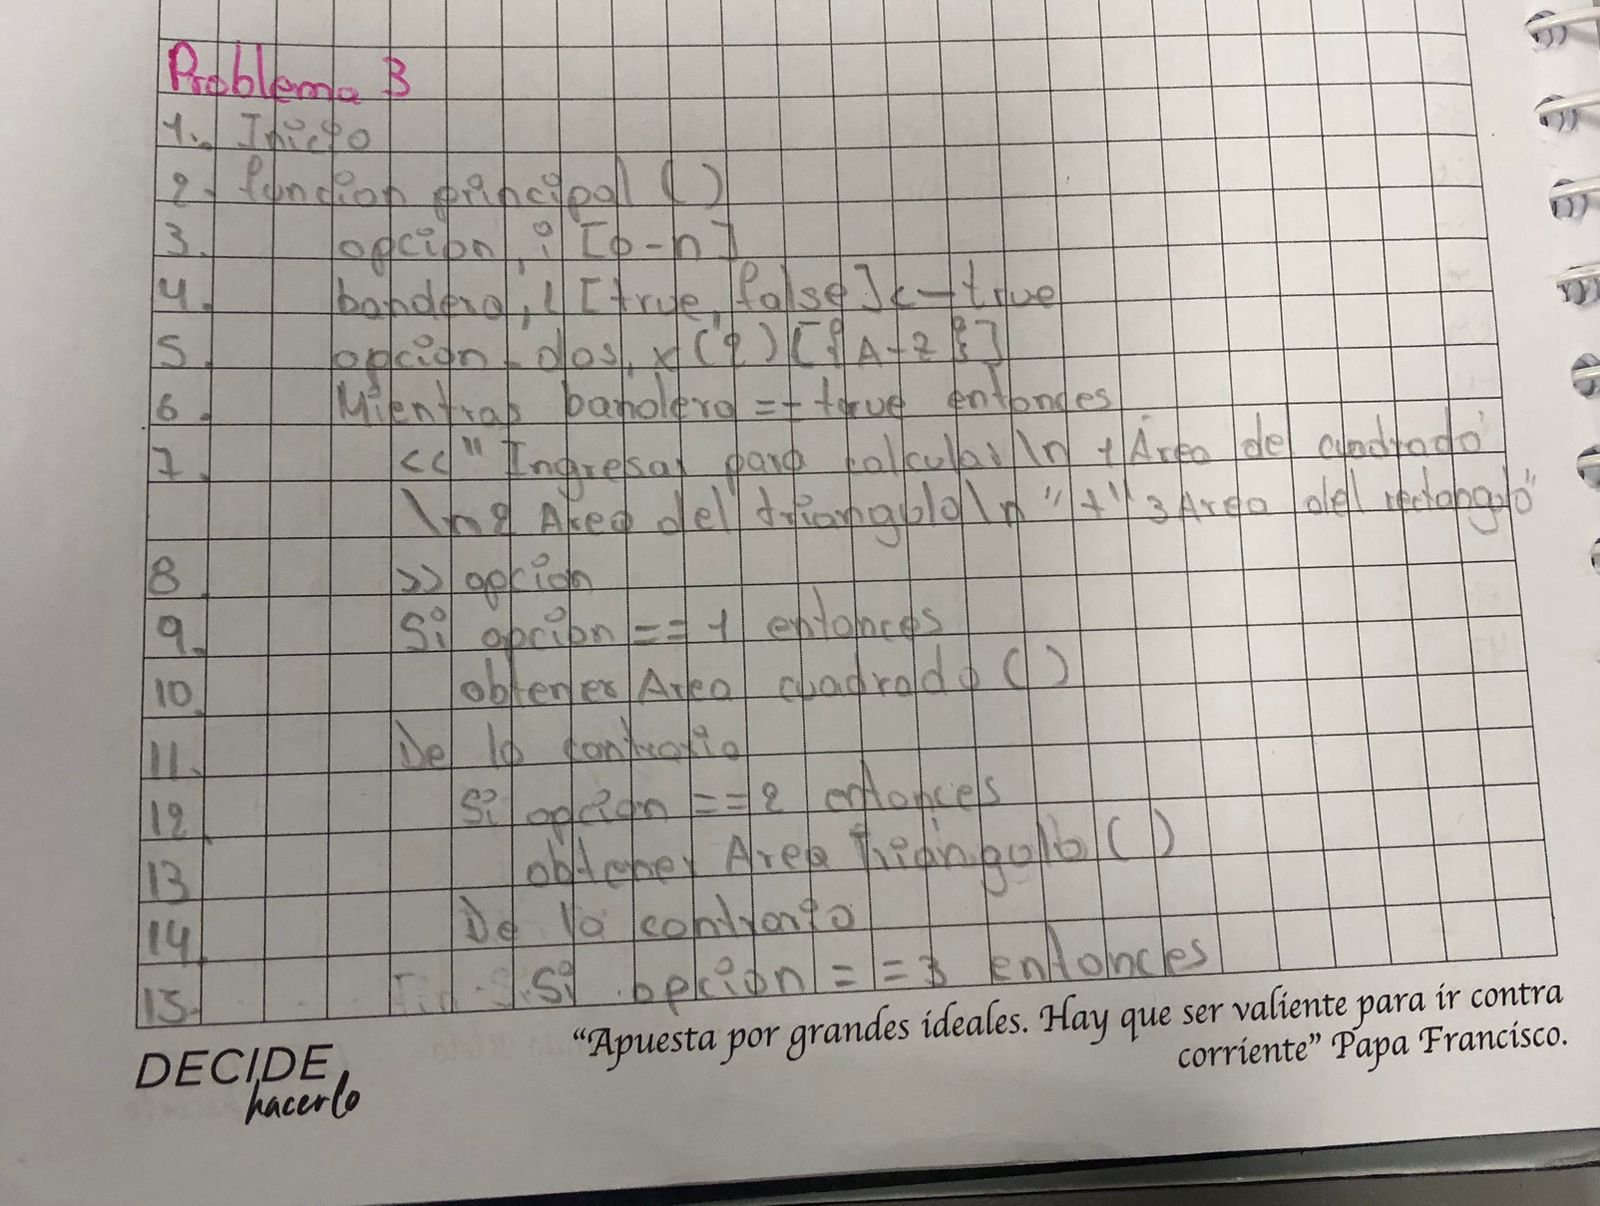 Problema 3
1. Inicio
2. funcion principal ( )
3. opcion, i [0-n]
4. bandera, l [true, false] <- true
5. opcion_dos, x(2) [{A-Z}]
6. Mientras bandera == true entonces
7. << "Ingresar para calcular \n 1 Área de cuadrado
\n 2 Area del triangulo \n " + " 3 Area del rectangulo"
8 >> opcion
9. Si opcion == 1 entonces
10. obtener Area cuadrado ( )
11. De lo contrario
12 Si opcion == 2 entonces
13 obtener Area Triangulo ( )
14. De lo contrario
15. Si opcion == 3 entonces
"Apuesta por grandes ideales. Hay que ser valiente para ir contra
corriente" Papa Francisco.
DECIDE
hacerlo